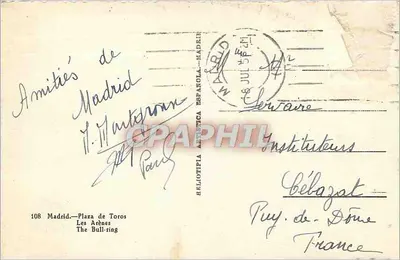 Amitiés de
Madrid
H. Montgronn
Paul
108 Madrid.—Plaza de Toros
Les Arènes
The Bull-ring
HELIOTIPIA ARTISTICA ESPAÑOLA.—MADRID
MADRID
8 JUL
Servaire
Instituteurs
Cébazat
Puy-de-Dôme
France
CPAPHIL